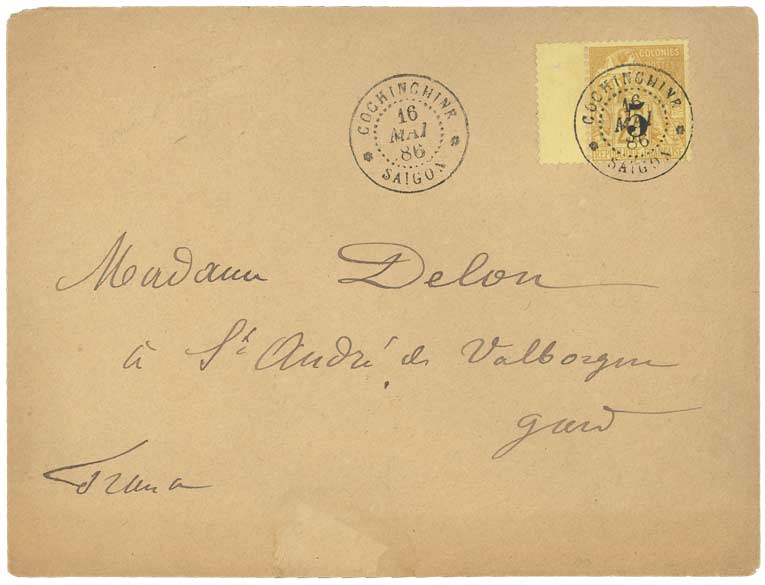 COCHINCHINE
16
MAI
86
SAIGON
COLONIES
COCHINCHINE
16
5
MAI
86
SAIGON
Madame Delon
à St André de Valborgne
gard
France